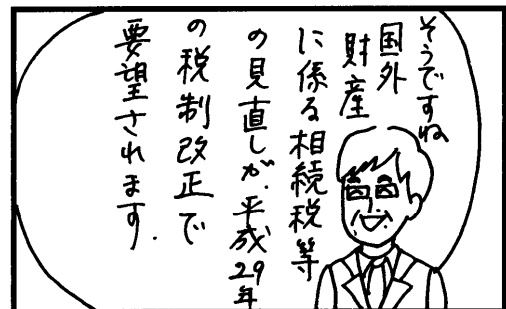 そうですね
国外
財産
に係る相続税等
の見直しが、平成29年
の税制改正で
要望されます.